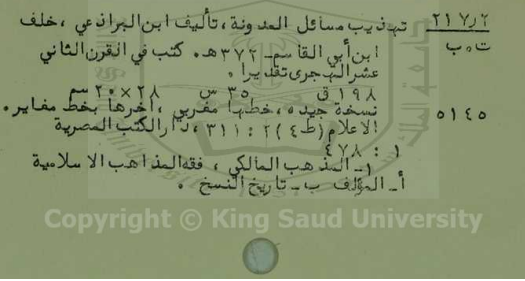 ٢١٧٫٢ تهذيب مسائل المدونة، تأليف ابن البراذعي، خلف
ت٠ب ابن أبي القاسم ـ ٣٧٢هـ. كتب في القرن الثاني
عشر الهجرى تقديرا ٠
١٩٨ ق ٣٥ س ٢٨×٢٠ سم
٥١٤٥ نسخة جيده، خطها مغربي، آخرها بخط مغاير.
الاعلام (ط٤) ٢: ٣١١، دار الكتب المصرية
١: ٤٧٨
١ـ المذهب المالكي، فقه المذاهب الاسلامية
أـ المؤلف ب ـ تاريخ النسخ ٠
Copyright © King Saud University